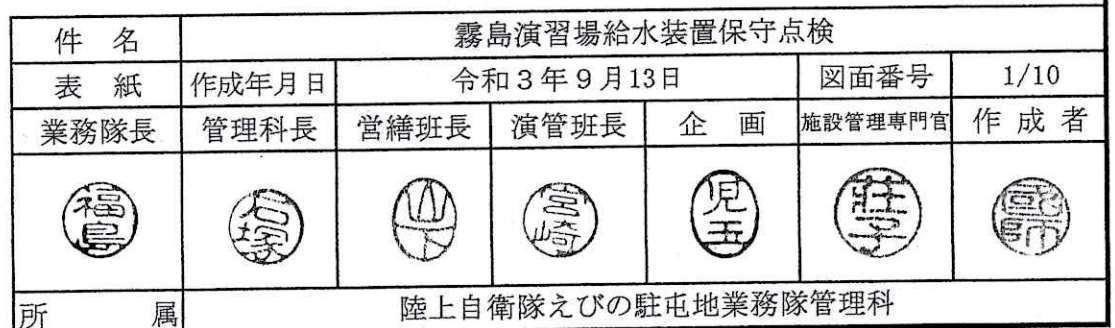 件 名 霧島演習場給水装置保守点検
表 紙 作成年月日 令和3年9月13日 図面番号 1/10
業務隊長 管理科長 営繕班長 演管班長 企 画 施設管理専門官 作 成 者
福島 石塚 山下 宮崎 児玉 荘子 國師
所 属 陸上自衛隊えびの駐屯地業務隊管理科